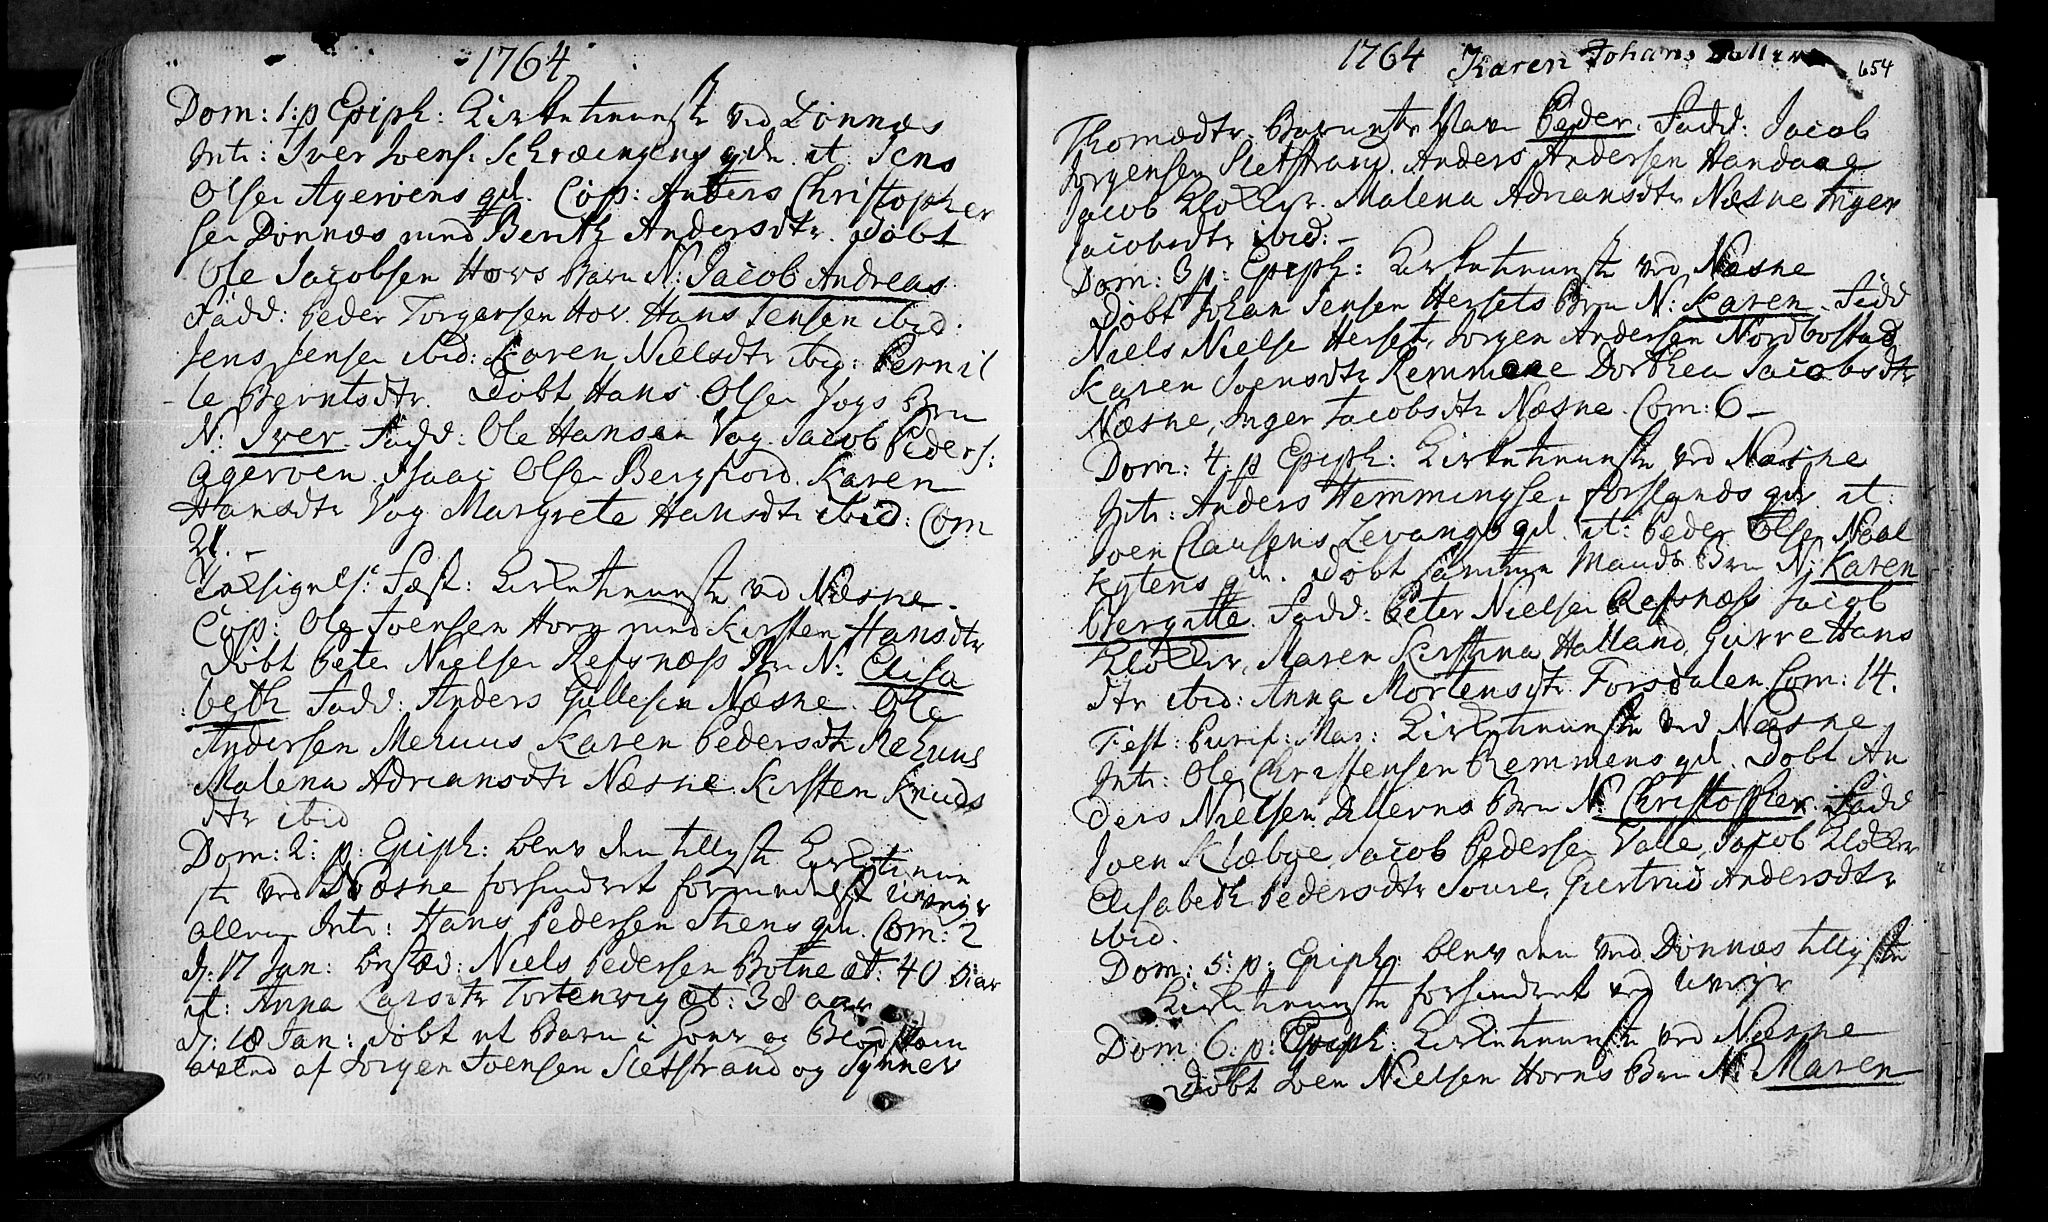 1764
Dom: 1: p Epiph: Kirketieniste ved Dönnæs
Intr: Iver Joens: Schrævens qde. it. Jens
Olsen Agerøens qd. Cop: Anders Christopher
sen Dönnæs med Berith Andersdtr. Döbt
Ole Jacobsen Hovs Barn N: Jacob Andreas
Fadd: Peder Torgersen Hov. Hans Jensen ibid.
Jens Jensen ibid: Karen Nielsdtr ibid: Pernil
le Berntsdtr. Döbt Hans Olsen Vogs Brn
N: Iver. Fadd: Ole Hansen Vog. Jacob Peders:
Agerøen Isaac Olsen Bergfiord. Karen
Hansdtr Vog Margrete Hansdtr ibid: Com
21. -
Taksigels: Fæst: Kirketieniste ved Næsne.
Cop: Ole Joensen Horn med Kirsten Hansdtr
Döbt Peter Nielsen Refsnæss Brn N: Elisa
beth Fadd: Anders Gullesen Næsne. Ole
Andersen Mehuus Karen Pedersdtr Mehuus
Malena Adriansdtr Næsne. Kirsten Knuds
dtr ibid
Dom: 2: p: Epiph: blev den tillyste Kirketieni
ste ved Næsne forhindret formedelst Uveyr
allene Intr: Hans Pedersen Stens qde. Com: 2
d: 17 Jan: begrav: Niels Pedersen Botne æt: 40 aar
it: Anna Larsdtr Tortenvig æt: 38 aar
d: 18 Jan: döbt et Barn i Hoer og Blodskam
avlend af Jörgen Joensen Sletstrand og Synnev
1764 Karen Johans
654
Thomædtr. Barnets Navn Peder. Fadd: Jacob
Jörgensen Sletstrand. Anders Andersen Handaae
Jacob Klokker. Malena Adriansdtr Næsne Inger
Jacobsdtr ibid: -
Dom: 3 p: Epiph: Kirketieniste ved Næsne
Döbt Johan Jensen Hersets Brn N: Karen. Fadd
Niels Nielsen Herset, Jörgen Andersen Nordbostad
Karen Joensdtr Remmene Dorthea Jacobsdtr
Næsne, Inger Jacobsdtr Næsne. Com: 6 -
Dom: 4: p Epiph: Kirketieniste ved Næsne
Intr: Anders Hemmingsen Forslands qde. it:
Joen Clausens Levangs qd. it: Peder Olsen Neal
Kötens qde. Döbt samme Mands Brn N: Karen
Bergitte. Fadd: Peter Nielsen Refsnæss Jacob
Klokker, Maren Kirstina Halland, Gurre Hans
dtr ibid: Anna Mortensdtr Forsdalen Com: 14.
Fest: Purif: Mar: Kirketieniste ved Næsne
Intr: Ole Christensen Remmens qd. Döbt An
ders Nielsen Dillerns Brn N: Christopher. Fadd
Joen Klæboe Jacob Pedersen Valle, Jacob Klokker
Elisabeth Pedersdtr Soure, Giertrud Andersdtr
ibid.
Dom: 5: p: Epiph: blev den ved Dönnæs tillyste
Kirketieniste forhindret ved Uveyr
Dom: 6: p: Epiph: Kirketieniste ved Næsne
Döbt Joen Nielsen Horns Brn N: Maren